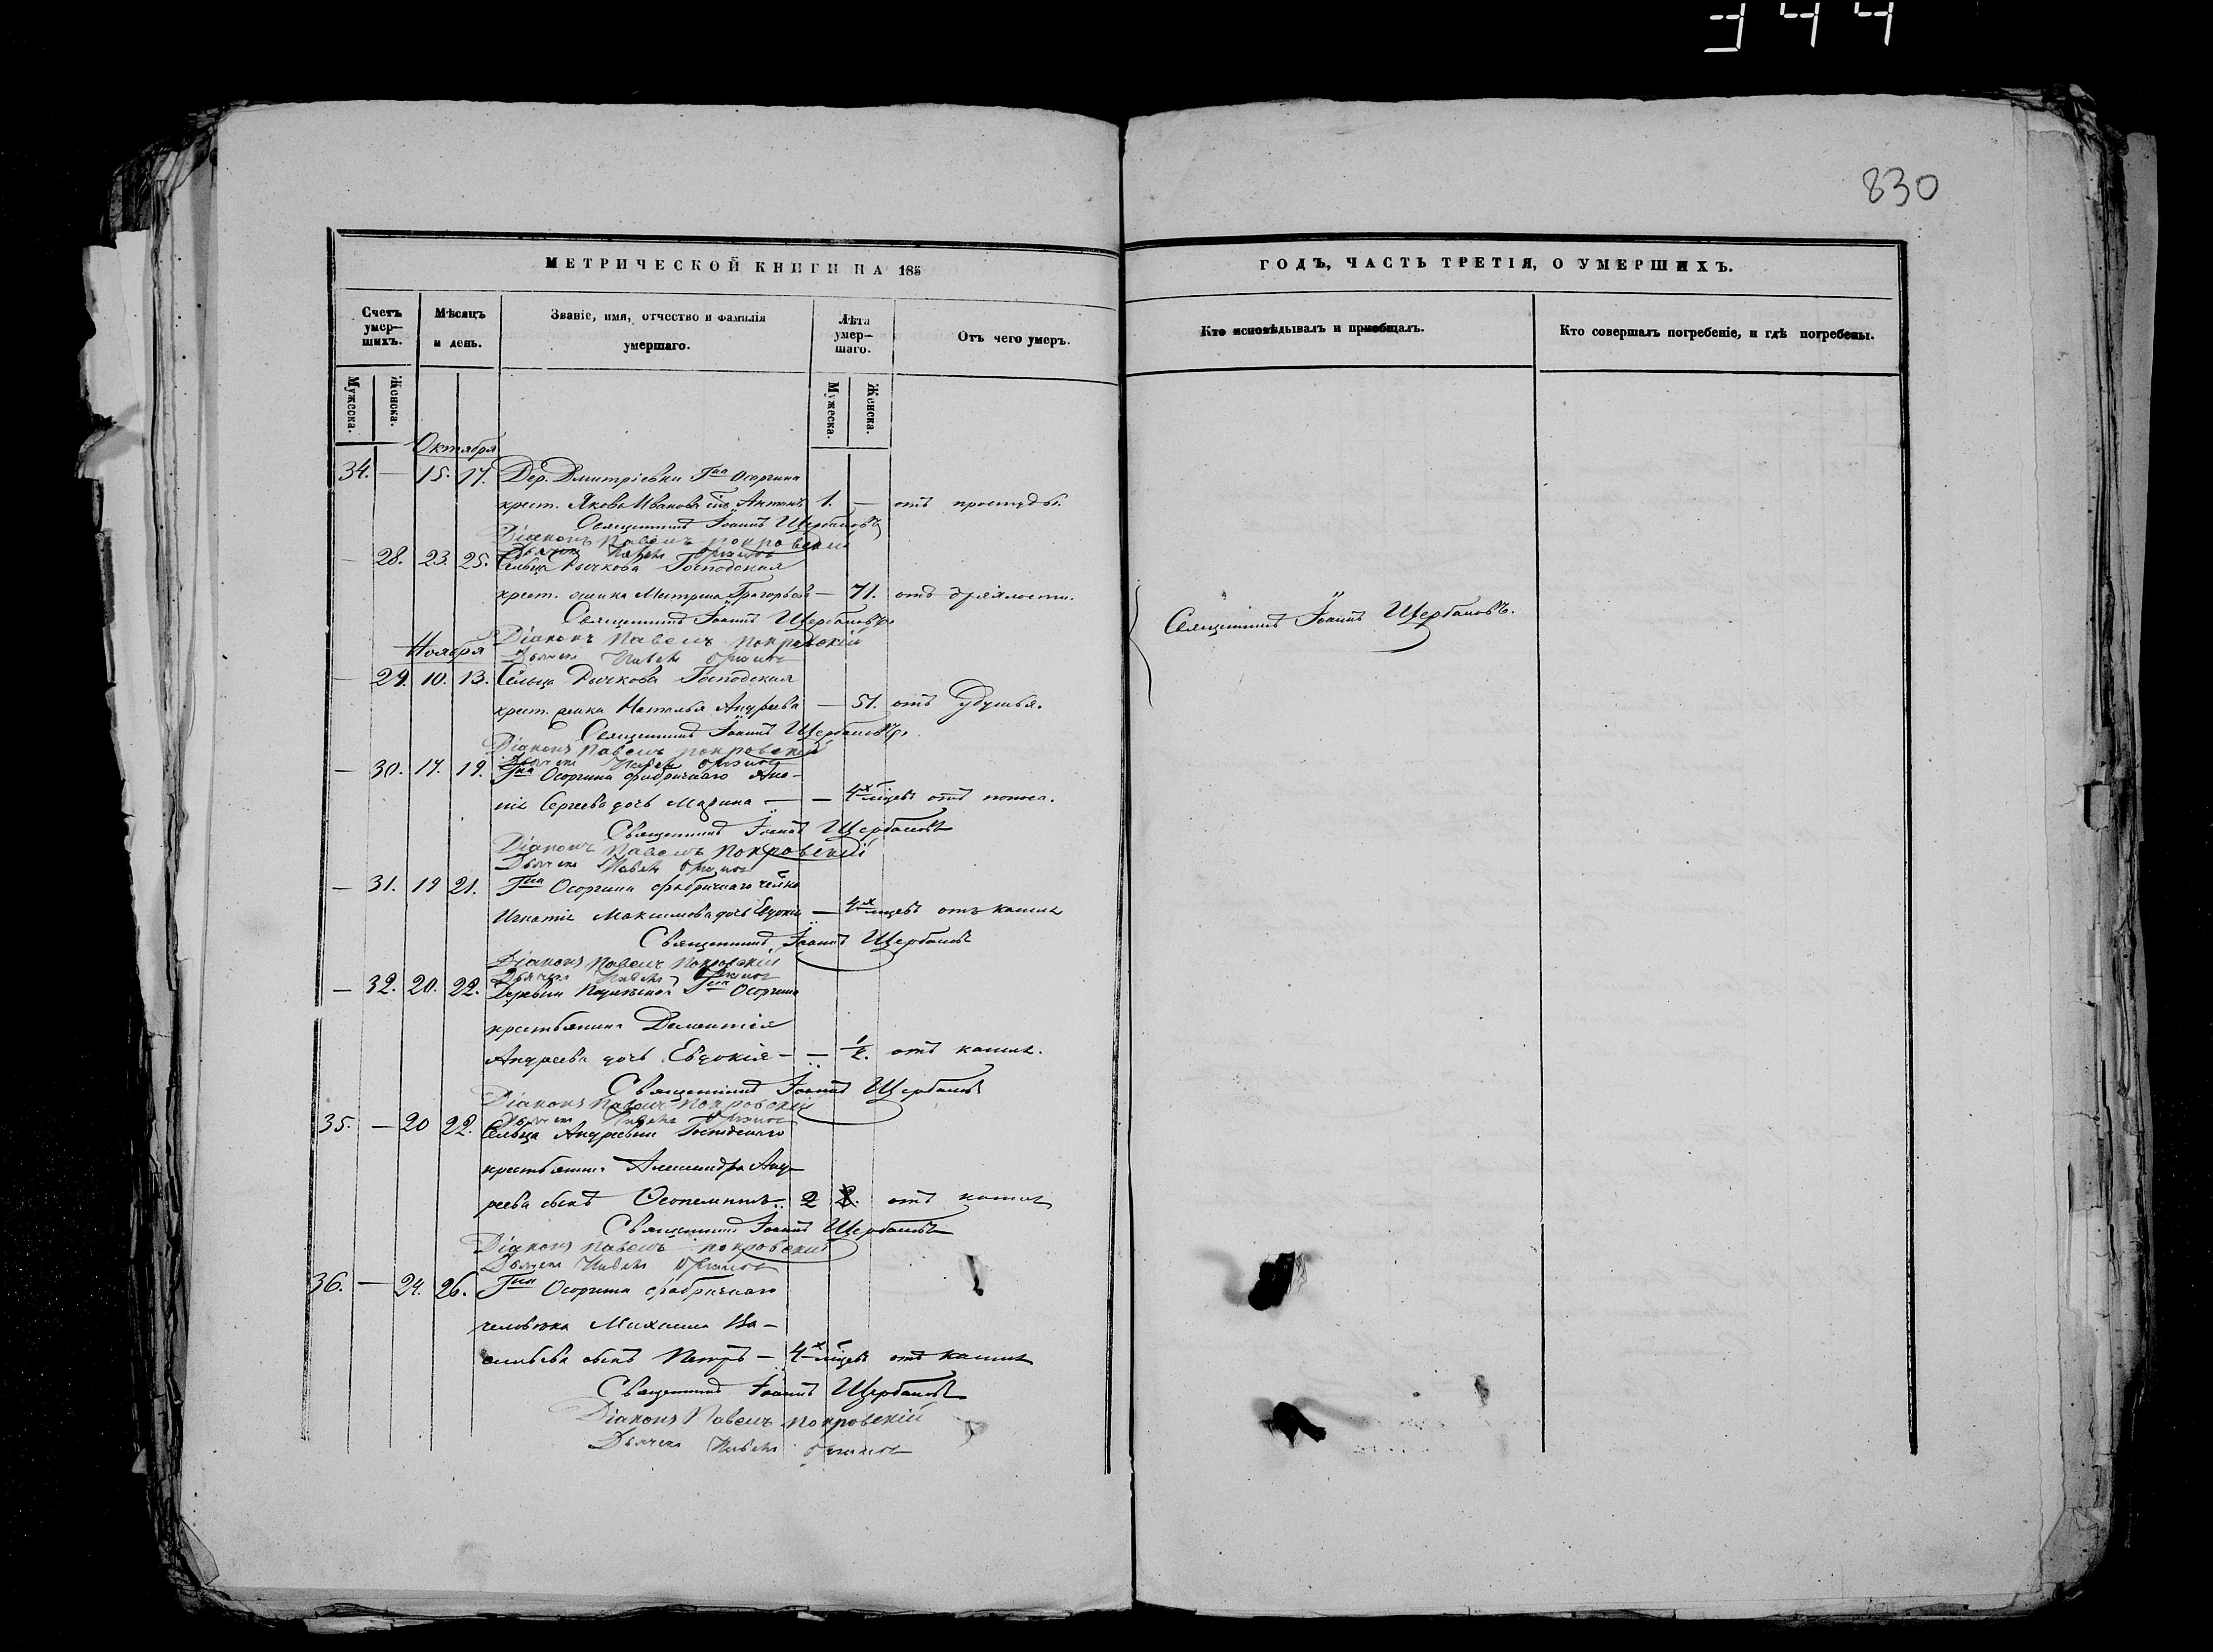 344
830
МЕТРИЧЕСКОЙ КНИГИ НА 185
ГОДЪ, ЧАСТЬ ТРЕТІЯ, О УМЕРШИХЪ.
Счетъ умер-шихъ.
Мѣсяцъ и день.
Званіе, имя, отчество и фамилія умершаго.
Лѣта умер-шаго.
Отъ чего умеръ.
Кто исповѣдывалъ и приобщалъ.
Кто совершалъ погребеніе, и гдѣ погребены.
Мужеска. Женска.
Мужеска. Женска.
Октября
34. — 15. 17. Дер. Дмитріевки Гна Осоргина
крест. Якова Иванова Антонъ 1. — отъ простуды.
Священникъ Іоаннъ Щербаковъ
Діаконъ Павелъ Покровскій
Дьячекъ
— 28. 23. 25. Сельца Рычкова Господская
крест. Матрена Григорьева — 71. отъ дряхлости.
Священникъ Іоаннъ Щербаковъ
Діаконъ Павелъ Покровскій
Ноября
Дьячекъ
— 29. 10. 13. Сельца Рычкова Господская
крест. Наталья Андреева — 51. отъ удушья.
Священникъ Іоаннъ Щербаковъ
Діаконъ Павелъ Покровскій
Дьячекъ
— 30. 17. 19. Гна Осоргина фабричнаго
Сергеева дочь Марина — — 4х мцевъ отъ поноса.
Священникъ Іоаннъ Щербаковъ
Діаконъ Павелъ Покровскій
Дьячекъ
— 31. 19 21. Гна Осоргина фабричнаго
Игнатія Максимова дочь Евдокія — 4х мцевъ отъ кашля
Священникъ Іоаннъ Щербаковъ
Діаконъ Павелъ Покровскій
Дьячекъ
— 32. 20. 22. Деревни Гна Осоргина
крестьянина Дементія
Андреева дочь Евдокія — — 1/2. отъ кашля.
Священникъ Іоаннъ Щербаковъ
Діаконъ Павелъ Покровскій
Дьячекъ
35. — 20 22. Сельца Андреевки Господскаго
крестьянина Александра Анд-
реева сынъ 2 отъ кашля
Священникъ Іоаннъ Щербаковъ
Діаконъ Павелъ Покровскій
Дьячекъ
36. — 24. 26. Гна Осоргина фабричнаго
человѣка Михаила Ва-
сильева сынъ Петръ — 4х мцевъ отъ кашля
Священникъ Іоаннъ Щербаковъ
Діаконъ Павелъ Покровскій
Дьячекъ
Священникъ Іоаннъ Щербаковъ.